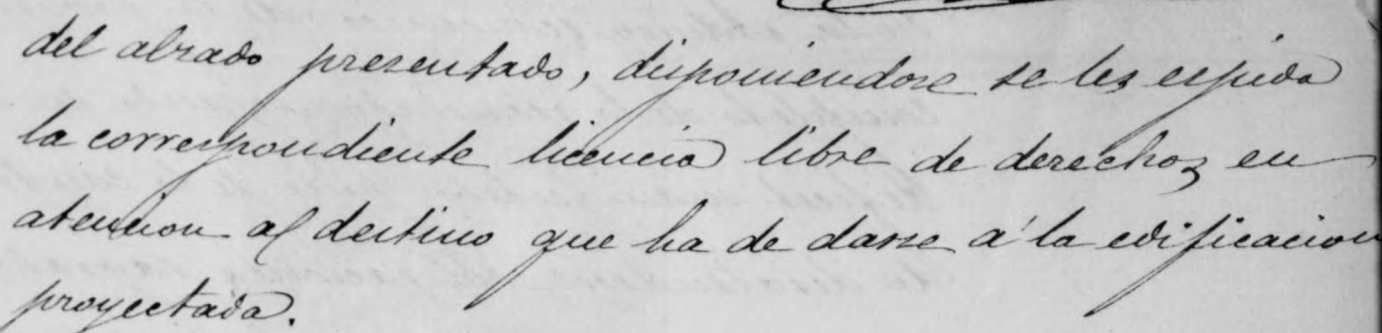 del alzado presentado, disponiendose se les espida
la correspondiente licencia libre de derechos en
atencion al destino que ha de darse á la edificacion
proyectada.